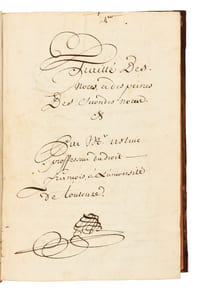 Traitté Des
Noces, et des peines
Des Secondes noces
&
Par Mr. Astruc
Professeur du droit
françois, à L'université
de toulouze